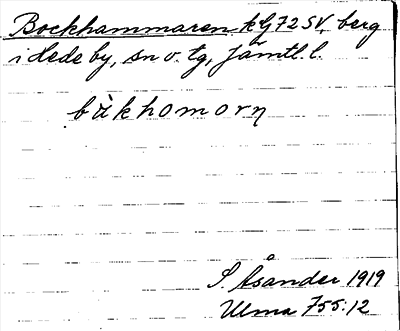 Bockhammaren kG72SV, berg
i Hede by, sn o. tg, Jämtl. l.
bʌ̀khomorn̥
S. Åsander 1919
Ulma 755:12